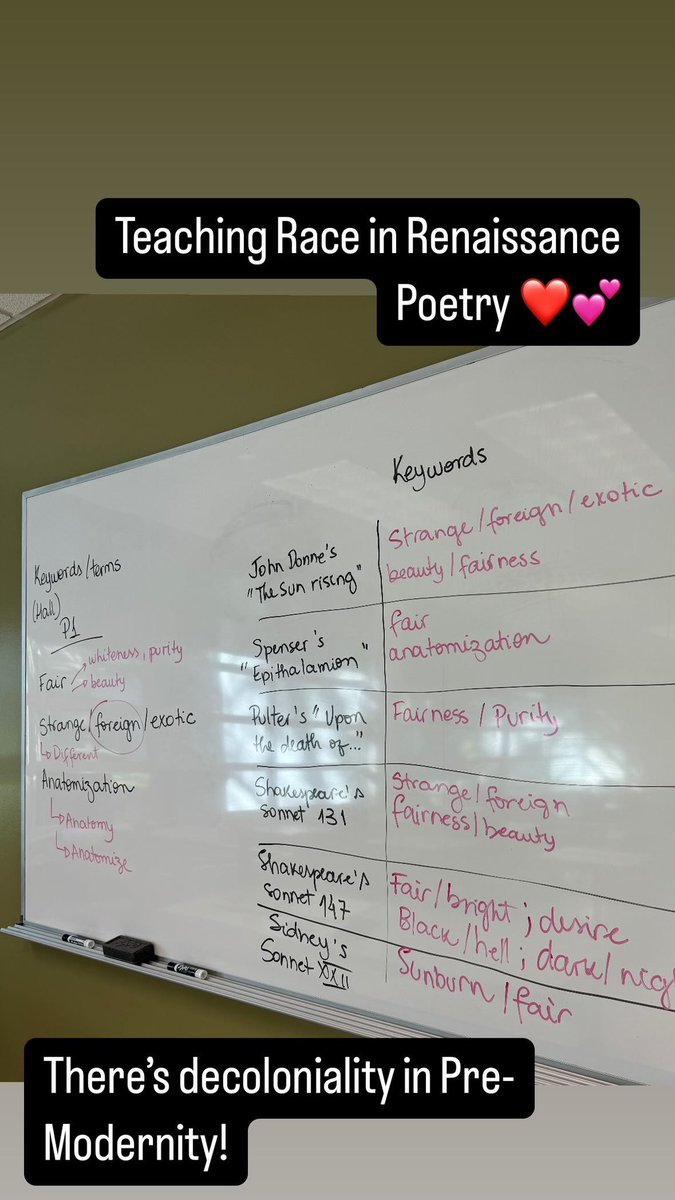 Teaching Race in Renaissance
Poetry ❤️💕
Keywords/terms
(Hall)
P1
Fair
whiteness, purity
beauty
Strange/foreign/exotic
Different
Anatomization
Anatomy
Anatomize
Keywords
John Donne's
"The Sun rising"
Strange/foreign/exotic
beauty/fairness
Spenser's
"Epithalamion"
fair
anatomization
Pulter's "Upon
the death of..."
Fairness / Purity
Shakespeare's
sonnet 131
Strange/foreign
fairness/beauty
Shakespeare's
sonnet 147
Fair/bright ; desire
Black/hell ; dark/
Sidney's
Sonnet XXII
Sunburn / fair
There's decoloniality in Pre-
Modernity!